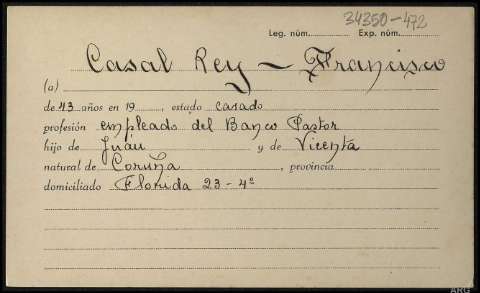 34350-472
Leg. núm. Exp. núm.
Casal Rey - Francisco
(a)
de 43 años en 19 , estado casado
profesión empleado del Banco Pastor
hijo de Juan y de Vicenta
natural de Coruña , provincia
domiciliado Florida 23-4º
ARG